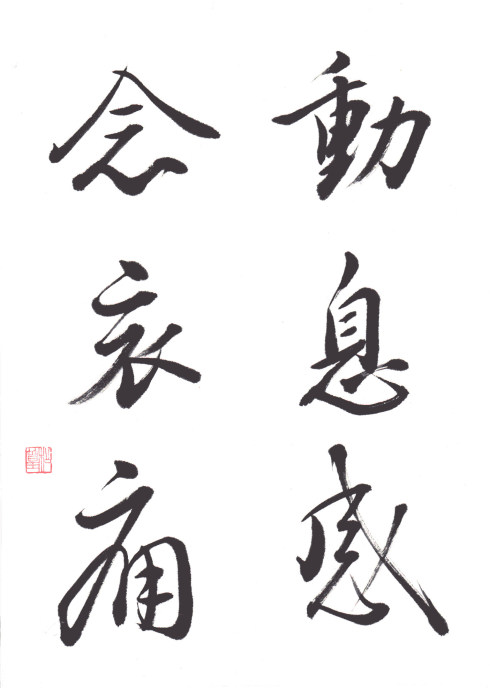 動息感
念哀痛